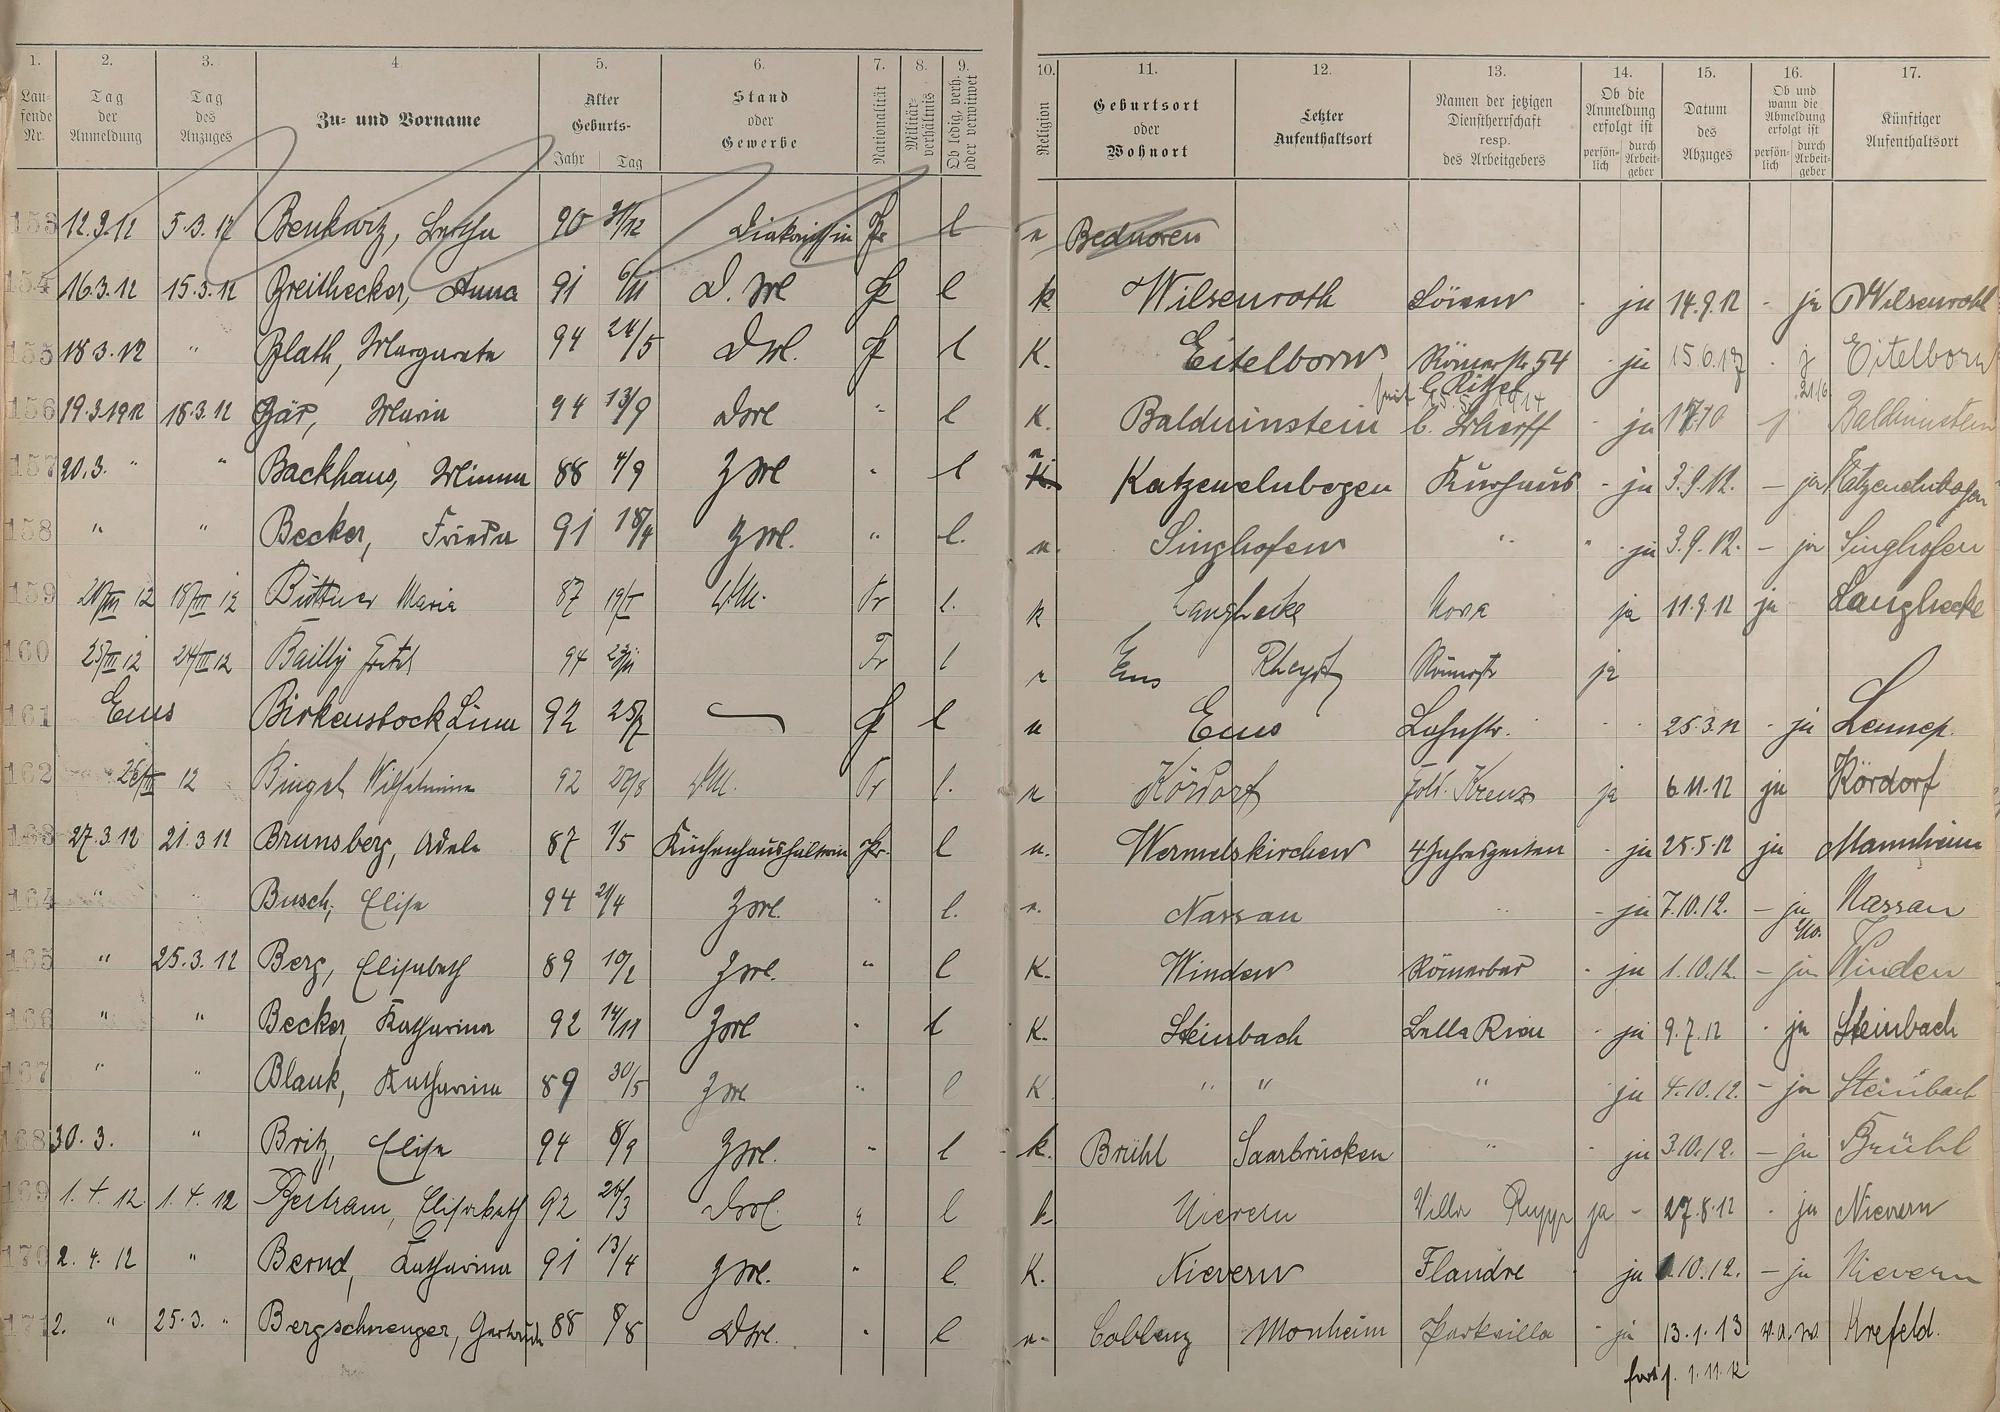 1. 2. 3. 4 5. 6. 7. 8. 9. 10. 11. 12. 13. 14. 15. 16. 17.
Laufende Nr. Tag der Anmeldung Tag des Anzuges Zu- und Vorname Alter Geburts- Jahr Tag Stand oder Gewerbe Nationalität Militärverhältnis Ob ledig, verh. oder verwitwet Religion Geburtsort oder Wohnort Letzter Aufenthaltsort Namen der jetzigen Dienstherrschaft resp. des Arbeitgebers Ob die Anmeldung erfolgt ist persönlich durch Arbeitgeber Datum des Abzuges Ob und wann die Abmeldung erfolgt ist persönlich durch Arbeitgeber Künftiger Aufenthaltsort
153 12.3.12 5.3.12 Benkwitz, Bertha 90 31/12 Diakonissin Pr l n Bednoren
154 16.3.12 15.3.12 Breithecker, Anna 91 6/11 D. Ml Pr l k Wilsenroth Löwen ja 14.9.12 - ja Wilsenroth
155 18.3.12 " Plath, Margareta 94 24/5 DMl. Pr l K. Eitelborn Römerstr. 54 ja 15.6.12 Eitelborn
156 19.3.1912 18.3.12 Bär, Maria 94 13/9 DMl " l K. Balduinstein ja Balduinstein
157 20.3. " " Backhaus, Minna 88 4/9 ZMl " l n. Katzenelnbogen Kurhaus - ja 3.9.12. - ja Katzenelnbogen
158 " " Becker, Frieda 91 18/4 ZMl. " l. n. Singhofen " " ja 3.9.12. - ja Singhofen
159 20/III 12 18/III 12 Büttner Maria 87 19/I Pr l. k Langhecke ja 11.9.12 ja Langhecke
160 25/III 12 24/III 12 Bailly 94 l Ems Rheydt Römerstr ja
161 Ems Birkenstock Lina 92 25/7 Pr l n Ems Lahnstr. 25.3.12 - ja Lennep.
162 26/III 12 Bingel Wilhelmine 92 27/8 Pr l. n Kördorf Joh. Kreuz ja 6.11.12 ja Kördorf
163 27.3.12 21.3.12 Brunsberg, Adele 87 1/5 Küchenhaushälterin Pr. l n. Wermelskirchen 4 Jahreszeiten - ja 25.5.12 ja Mannheim
164 " " Busch, Elise 94 21/4 ZMl. " l. n. Nassau " - ja 7.10.12. - ja Nassau
165 " 25.3.12 Berg, Elisabeth 89 10/2 ZMl. " l K. Winden Römerbad - ja 1.10.12. - ja Winden
166 " " Becker, Katharina 92 14/11 ZMl " l K. Steinbach Bella Riva - ja 9.7.12 - ja Steinbach
167 " " Blank, Katharina 89 30/5 ZMl " l K " " " ja 4.10.12. - ja Steinbach
168 30.3. " Britz, Elise 94 8/9 ZMl. " l k. Brühl Saarbrücken " ja 3.10.12. - ja Brühl
169 1.4.12. 1.4.12 Bertram, Elisabeth 92 24/3 DMl. " l k Nievern Villa Rupp ja - 27.8.12 - ja Nievern
170 2.4.12 " Bernd, Katharina 91 13/4 ZMl. " l K. Nievern Flandre ja 1.10.12. - ja Nievern
171 2. " 25.3. " Bergschwenger, Gertrud 88 8/8 DMl. " l n. Coblenz Monheim Parkvilla - ja 13.1.13 v.A.w. Krefeld.
fort 1.11.12